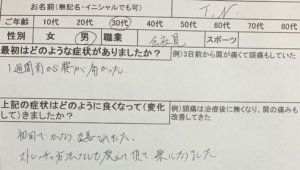 お名前(無記名・イニシャルでも可) J.N.
ご年齢 10代 20代 30代 40代 50代 60代
性別 女 男 職業 会社員 スポーツ
最初はどのような症状がありましたか? 例)3日前から肩が痛くて頭もしていた
1週間前から腰が痛かった。
上記の症状はどのように良くなって(変化して)きましたか? 例)頭痛は治療後に無くなり、肩の痛みも改善してきた
初回でかなり改善されました。
ストレッチの方法なども教えて頂き、楽になりました。